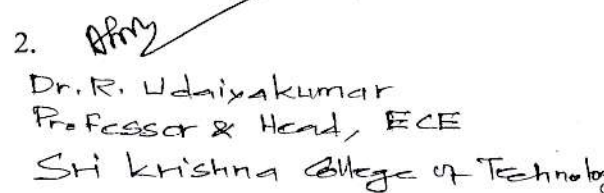 2.
Dr. R. Udaiyakumar
Professor & Head, ECE
Sri Krishna College of Technolo